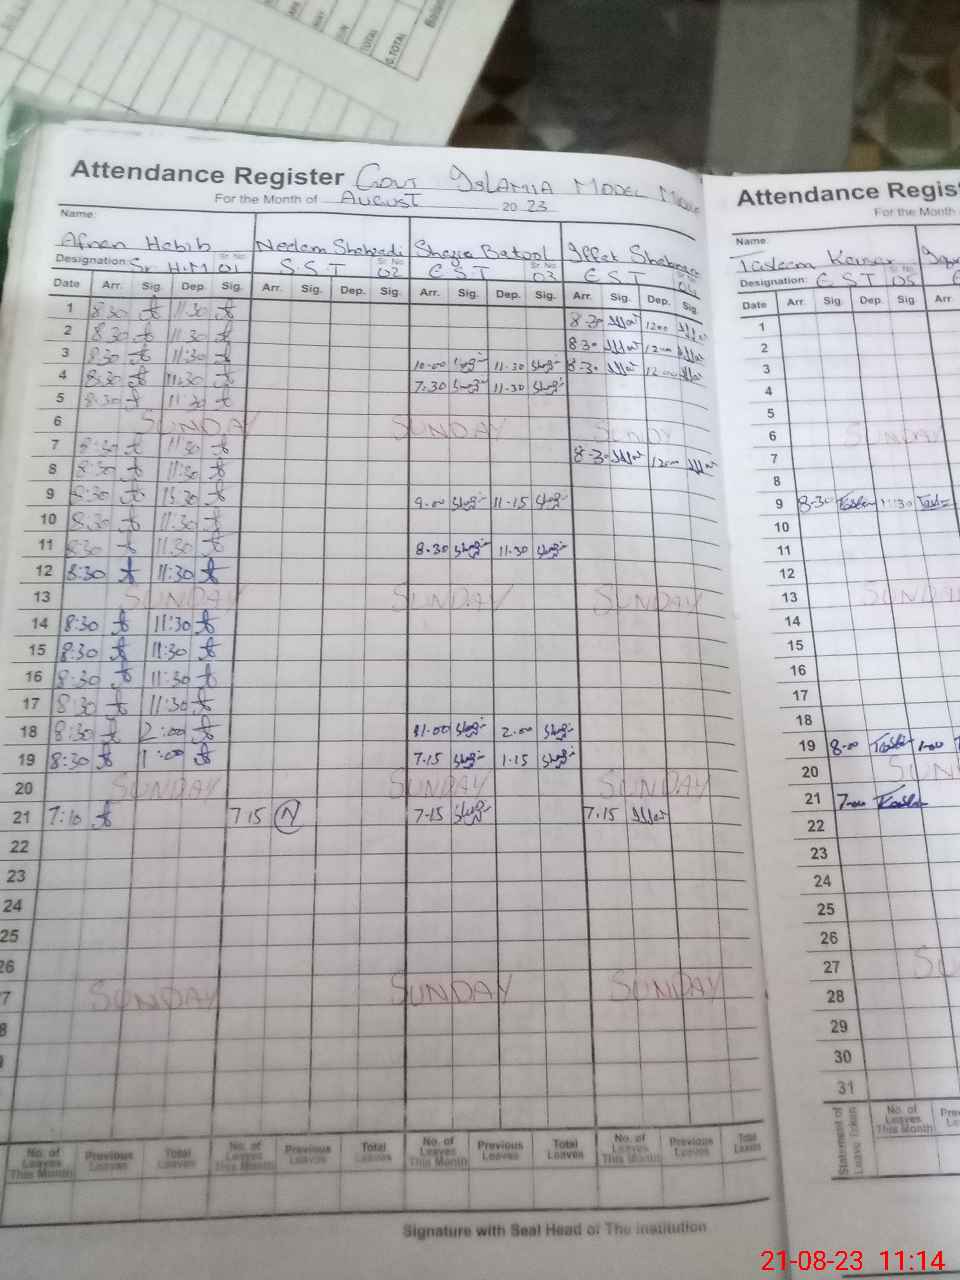 G.TOTAL
TOTAL
Attendance Register Govt Islamia Model
For the Month of August 20 23
Name:
Afnan Habib Neelam Shahzadi Shazia Batool Iffat Shahzadi
Designation: Sr. H.M Sr. No. 01 S.S.T 02 E S T Sr. No. 03 E S T
Date Arr. Sig. Dep. Sig. Arr. Sig. Dep. Sig. Arr. Sig. Dep. Sig. Arr. Sig. Dep. Sig.
1 8:30 11:30 8-30 Iffat 1200 Iffat
2 8:30 11:30 8-30 Iffat 1200 Iffat
3 8:30 11:30 10-00 11-30 8-30 Iffat 1200 Iffat
4 8:30 11:30 7.30 11-30
5 8:30 11:30
6 SUNDAY SUNDAY SUNDAY
7 8:30 11:30 8-30 Iffat 1200 Iffat
8 8:30 11:30
9 8:30 11:30 9-00 11-15
10 8:30 11:30
11 8:30 11:30 8-30 11-30
12 8:30 11:30
13 SUNDAY SUNDAY SUNDAY
14 8:30 11:30
15 8:30 11:30
16 8:30 11:30
17 8:30 11:30
18 8:30 2:00 11-00 2-00
19 8:30 1:00 7.15 1.15
20 SUNDAY SUNDAY SUNDAY
21 7:10 7 15 N 7-15 7.15 Iffat
22
23
24
25
26
7 SUNDAY SUNDAY SUNDAY
8
No. of Leaves This Month Previous Leaves Total Leaves No. of Leaves This Month Previous Leaves Total Leaves No. of Leaves This Month Previous Leaves Total Leaves No. of Leaves This Month Previous Leaves Total Leaves
Signature with Seal Head of The Institution
Attendance Regist
For the Month
Name:
Tasleem Kausar
Designation: E S T Sr. No. 05
Date Arr. Sig Dep. Sig. Arr
1
2
3
4
5
6 SUNDAY
7
8
9 8-30 11:30
10
11
12
13 SUNDAY
14
15
16
17
18
19 8-00 1-00
20 SUN
21 7-00
22
23
24
25
26
27 SU
28
29
30
31
Statement of Leave Taken No. of Leaves This Month
21-08-23 11:14